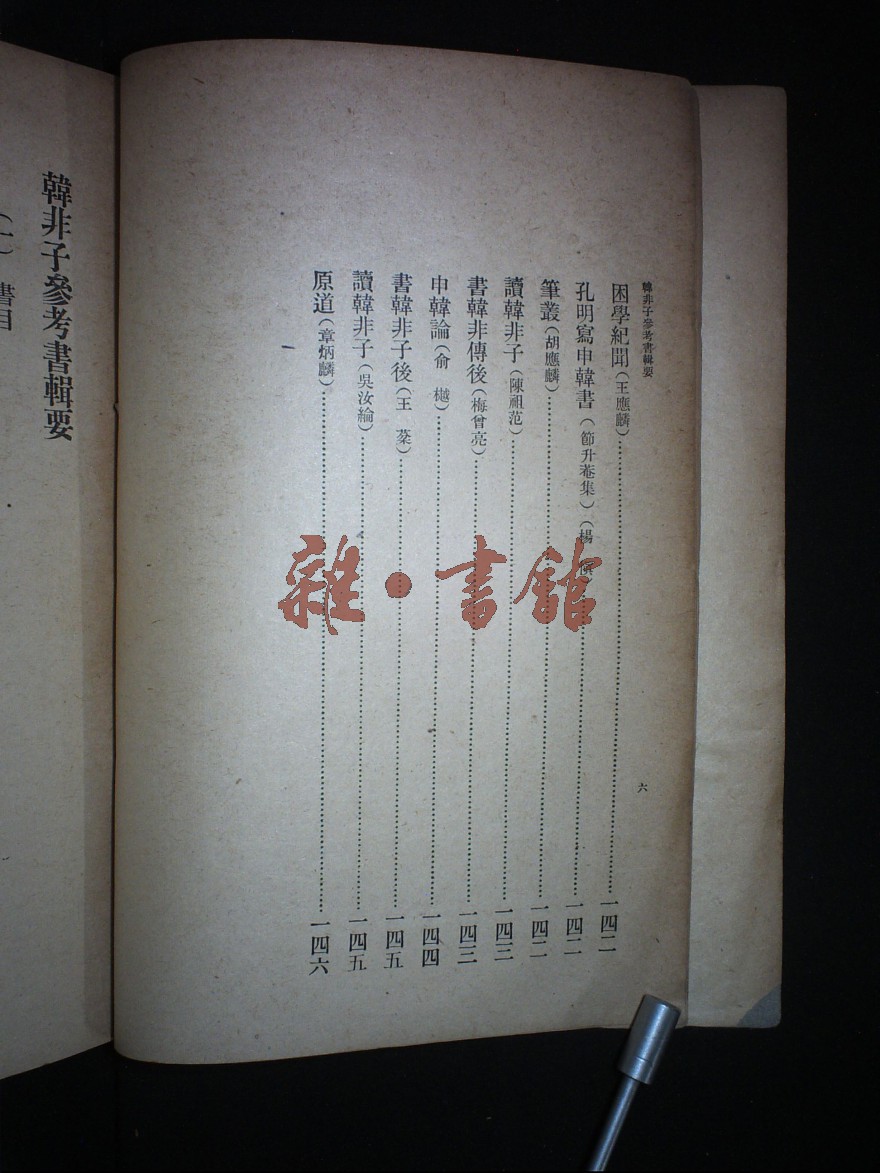 韓非子參考書輯要
六
困學紀聞(王應麟)……一四二
孔明寫申韓書(節升菴集)(楊 慎)……一四二
筆叢(胡應麟)……一四二
讀韓非子(陳祖范)……一四三
書韓非傳後(梅曾亮)……一四三
申韓論(俞 樾)……一四四
書韓非子後(王 棻)……一四五
讀韓非子(吳汝綸)……一四五
原道(章炳麟)……一四六
韓非子參考書輯要
(一) 書目
雜·書館